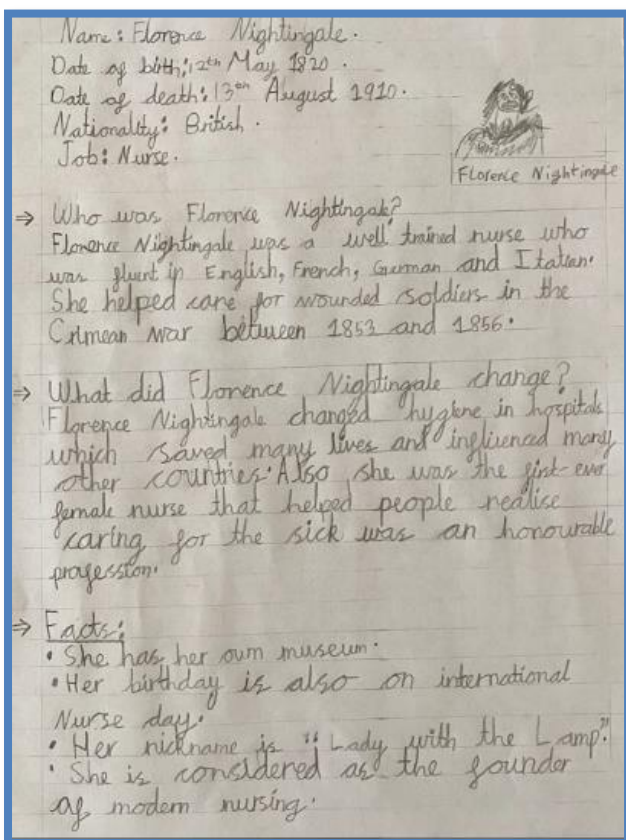 Name: Florence Nightingale.
Date of birth: 12th May 1820.
Date of death: 13th August 1910.
Nationality: British.
Job: Nurse.
Florence Nightingale
⇒ Who was Florence Nightingale?
Florence Nightingale was a well trained nurse who
was fluent in English, French, German and Italian.
She helped care for wounded soldiers in the
Crimean war between 1853 and 1856.
⇒ What did Florence Nightingale change?
Florence Nightingale changed hygiene in hospitals
which saved many lives and influenced many
other countries. Also she was the first-ever
female nurse that helped people realise
caring for the sick was an honourable
profession.
⇒ Facts:
• She has her own museum.
• Her birthday is also on international
Nurse day.
• Her nickname is "Lady with the Lamp".
• She is considered as the founder
of modern nursing.